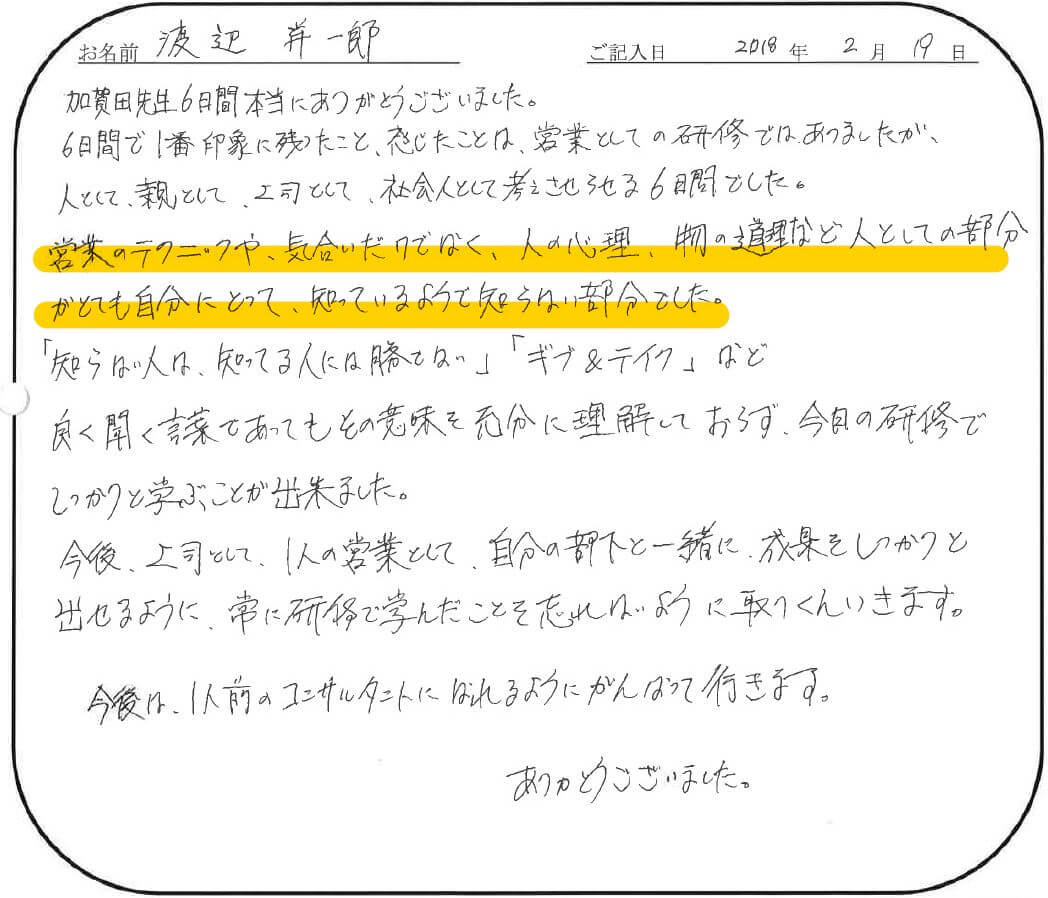 お名前 渡辺 洋一郎 ご記入日 2018年 2月 19日
加賀田先生6日間本当にありがとうございました。
6日間で1番印象に残ったこと、感じたことは、営業としての研修ではありましたが、
人として、親として、上司として、社会人として考えさせらせる6日間でした。
営業のテクニックや、気合いだけでなく、人の心理、物の道理など人としての部分
がとても自分にとって、知っているようで知らない部分でした。
「知らない人は、知ってる人には勝てない」「ギブ&テイク」など
良く聞く言葉であってもその意味を充分に理解しておらず、今日の研修で
しっかりと学ぶことが出来ました。
今後、上司として、1人の営業として、自分の部下と一緒に、成果をしっかりと
出せるように、常に研修で学んだことを忘れないように取りくんいきます。
今後は、1人前のコンサルタントになれるようにがんばって行きます。
ありがとうございました。